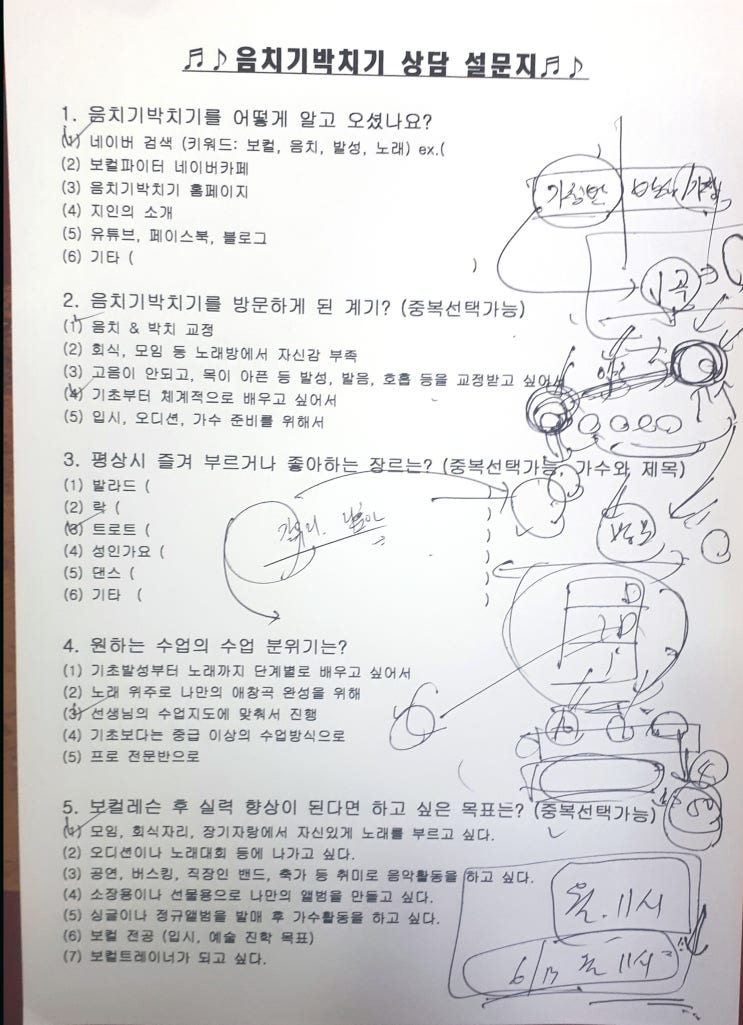 ♬♪음치기박치기 상담 설문지♬♪
1. 음치기박치기를 어떻게 알고 오셨나요?
(1) 네이버 검색 (키워드: 보컬, 음치, 발성, 노래) ex.( )
(2) 보컬파이터 네이버카페
(3) 음치기박치기 홈페이지
(4) 지인의 소개
(5) 유튜브, 페이스북, 블로그
(6) 기타 ( )
2. 음치기박치기를 방문하게 된 계기? (중복선택가능)
(1) 음치 & 박치 교정
(2) 회식, 모임 등 노래방에서 자신감 부족
(3) 고음이 안되고, 목이 아픈 등 발성, 발음, 호흡 등을 교정받고 싶어서
(4) 기초부터 체계적으로 배우고 싶어서
(5) 입시, 오디션, 가수 준비를 위해서
3. 평상시 즐겨 부르거나 좋아하는 장르는? (중복선택가능, 가수와 제목)
(1) 발라드 ( )
(2) 락 ( )
(3) 트로트 ( )
(4) 성인가요 ( )
(5) 댄스 ( )
(6) 기타 ( )
4. 원하는 수업의 수업 분위기는?
(1) 기초발성부터 노래까지 단계별로 배우고 싶어서
(2) 노래 위주로 나만의 애창곡 완성을 위해
(3) 선생님의 수업지도에 맞춰서 진행
(4) 기초보다는 중급 이상의 수업방식으로
(5) 프로 전문반으로
5. 보컬레슨 후 실력 향상이 된다면 하고 싶은 목표는? (중복선택가능)
(1) 모임, 회식자리, 장기자랑에서 자신있게 노래를 부르고 싶다.
(2) 오디션이나 노래대회 등에 나가고 싶다.
(3) 공연, 버스킹, 직장인 밴드, 축가 등 취미로 음악활동을 하고 싶다.
(4) 소장용이나 선물용으로 나만의 앨범을 만들고 싶다.
(5) 싱글이나 정규앨범을 발매 후 가수활동을 하고 싶다.
(6) 보컬 전공 (입시, 예술 진학 목표)
(7) 보컬트레이너가 되고 싶다.
월. 11시
6/17 월 11시